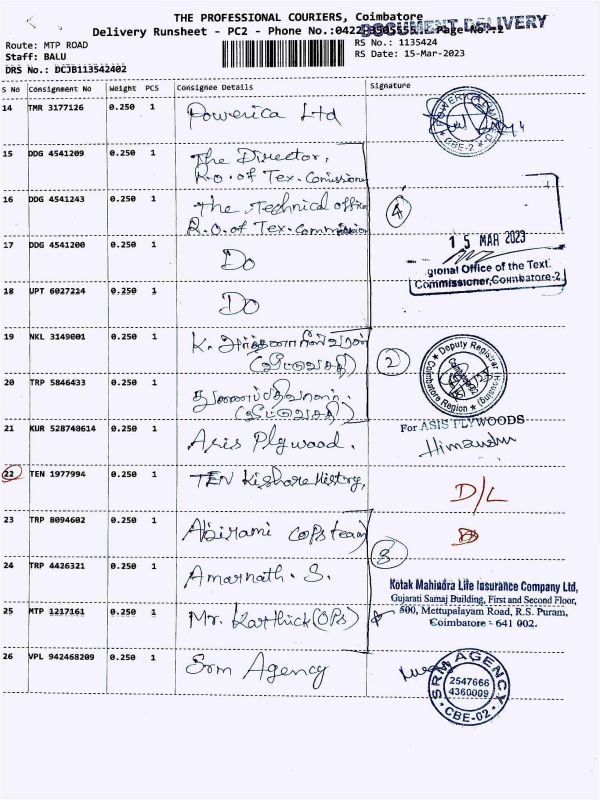 THE PROFESSIONAL COURIERS, Coimbatore
DOCUMENT DELIVERY
Delivery Runsheet - PC2 - Phone No.:0422 Page No.:2
Route: MTP ROAD
RS No.: 1135424
Staff: BALU
RS Date: 15-Mar-2023
DRS No.: DCJB113542402
S No Consignment No Weight PCS Consignee Details Signature
14 TMR 3177126 0.250 1 Powerica Ltd
CBE-2
15 DDG 4541209 0.250 1 The Director,
R.O. of Tex. Comissione
16 DDG 4541243 0.250 1 The Technical office
R.O. of Tex. Commission
4
17 DDG 4541200 0.250 1 Do
15 MAR 2023
gional Office of the Text.
Commissioner, Coimbatore-2
18 UPT 6027214 0.250 1 Do
19 NKL 3149001 0.250 1 K.
2
Deputy Registrar
(Housing)
Coimbatore Region
20 TRP 5846433 0.250 1
21 KUR 528740614 0.250 1 Asis Plywood.
For ASIS PLYWOODS
Himanshu
22 TEN 1977994 0.250 1 TEN Kishore
D/L
23 TRP 8094602 0.250 1 Abirami (OPs team)
3
24 TRP 4426321 0.250 1 Amarnath. S.
Kotak Mahindra Life Insurance Company Ltd,
Gujarati Samaj Building, First and Second Floor,
25 MTP 1217161 0.250 1 Mr. Karthick (OPs)
500, Mettupalayam Road, R.S. Puram,
Coimbatore - 641 002.
26 VPL 942468209 0.250 1 Srm Agency
SRM AGENCY
2547666
4360009
CBE-02